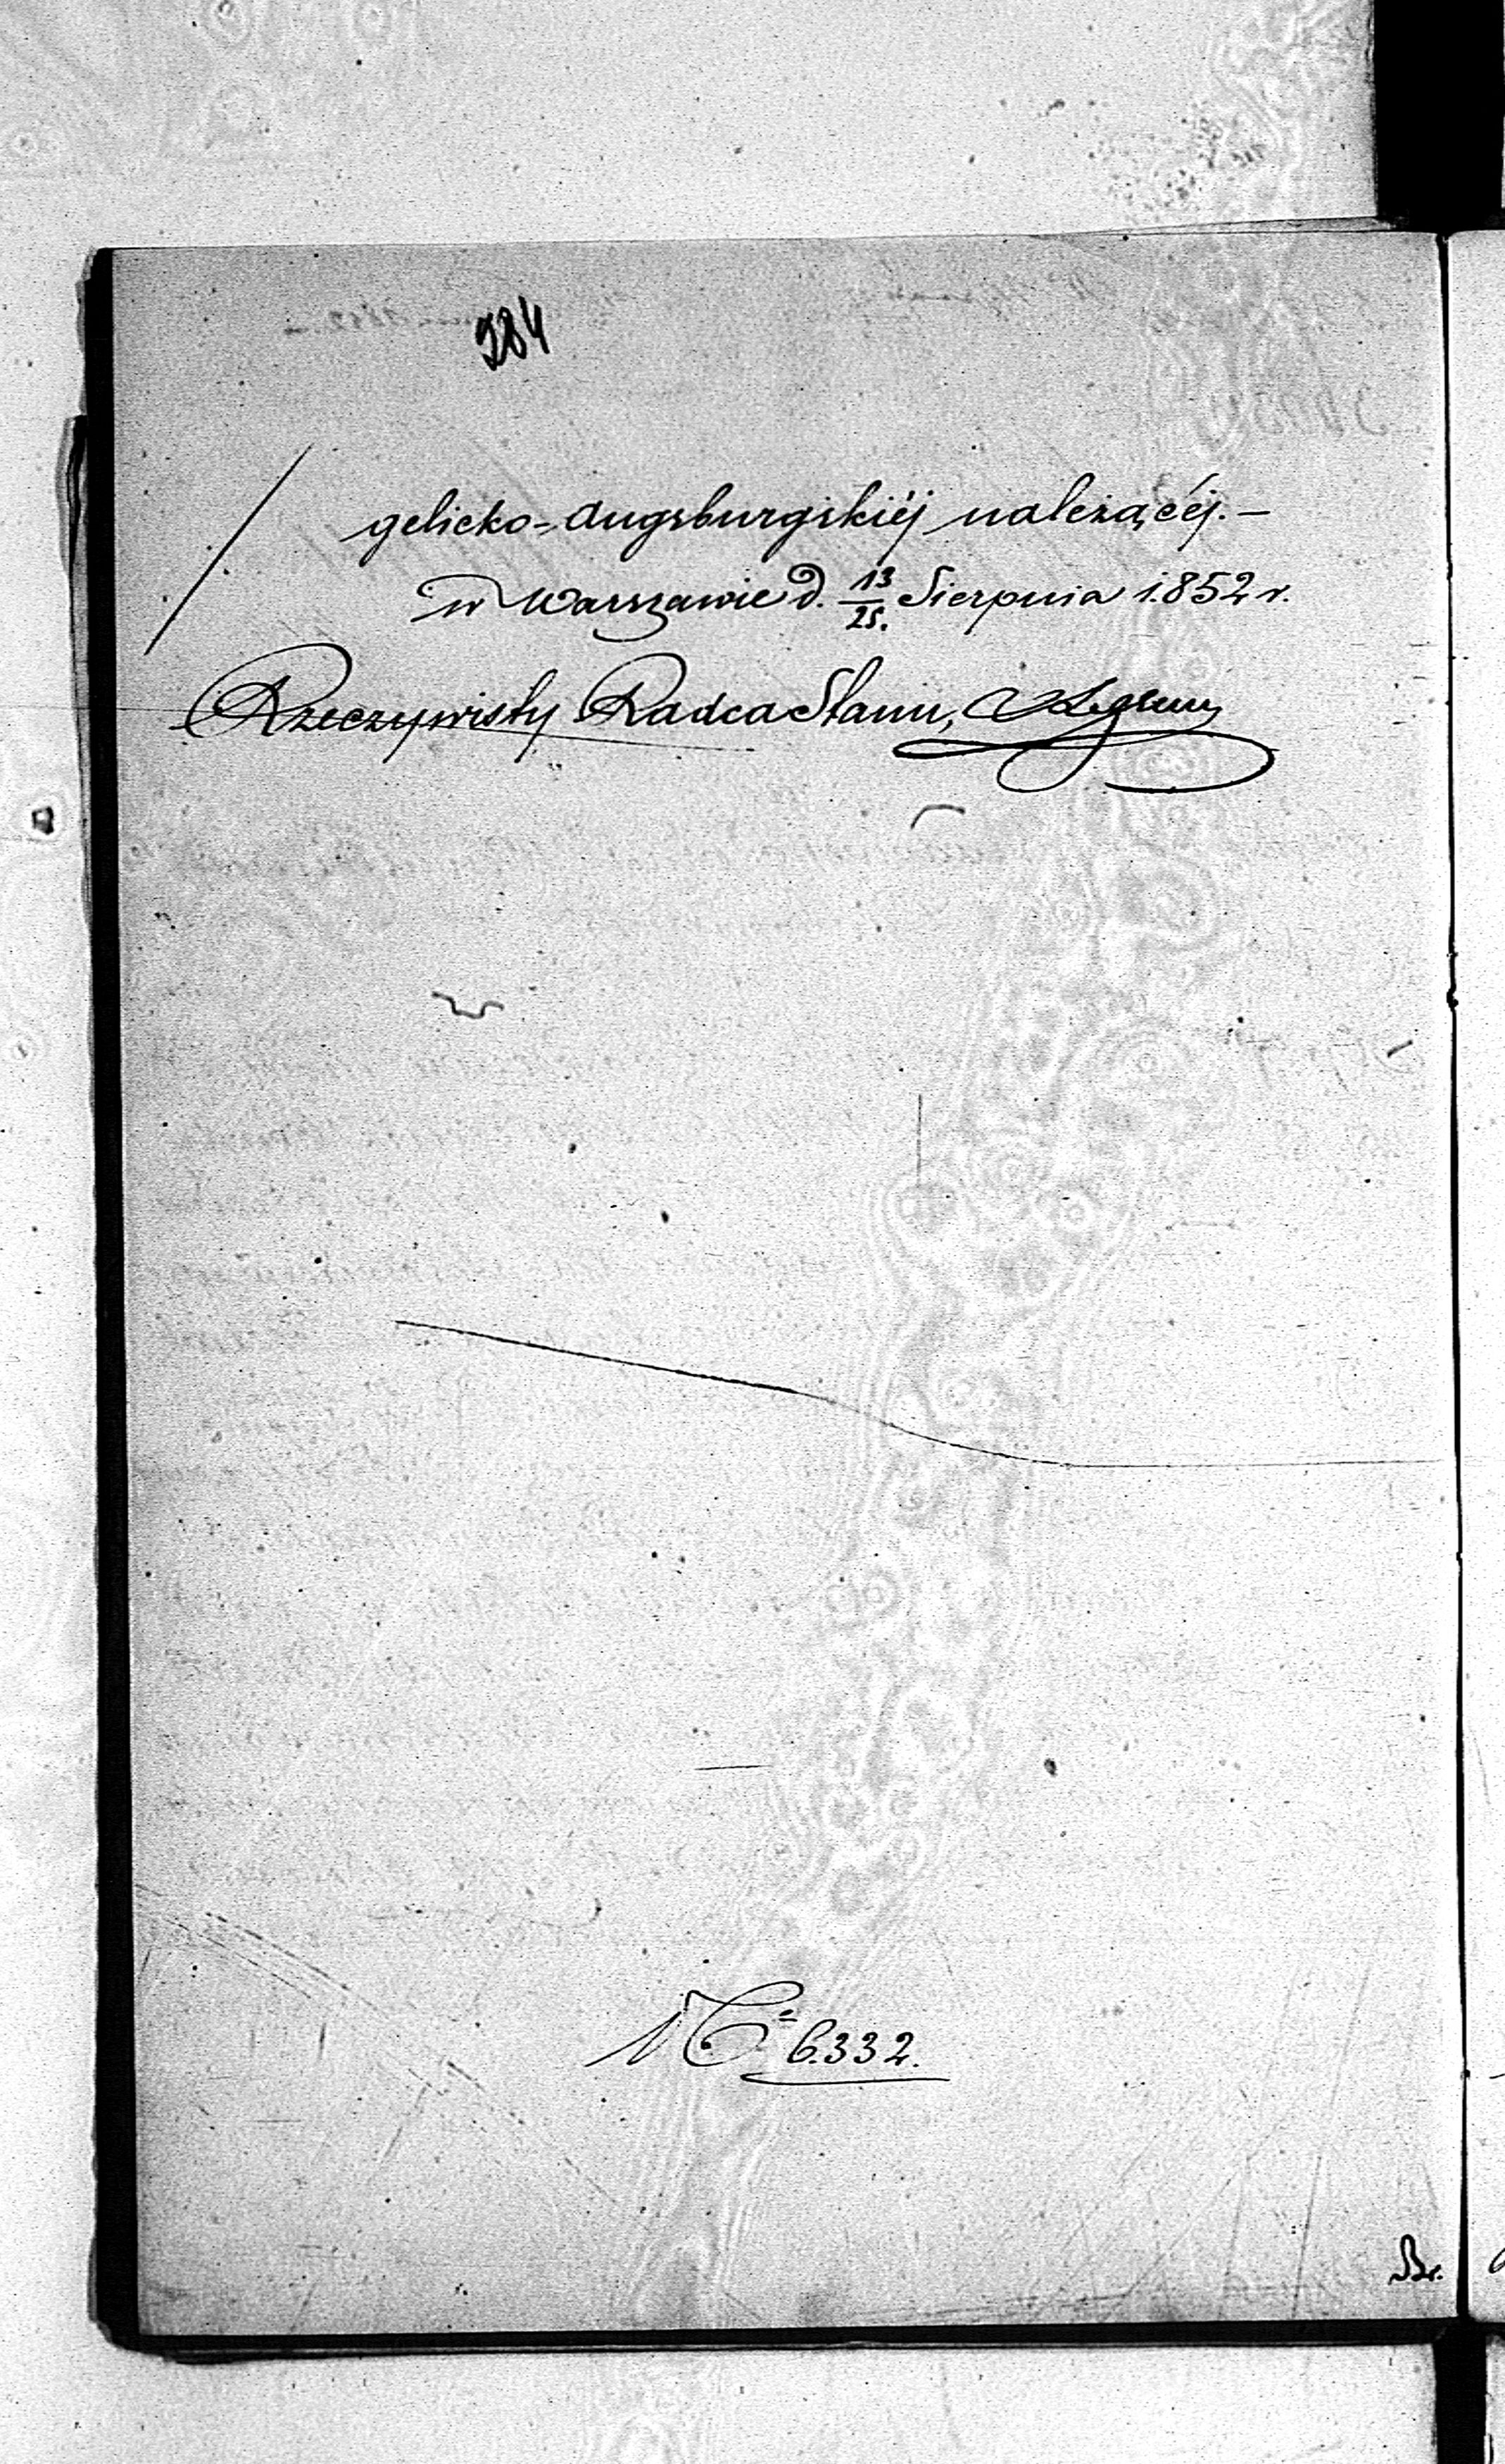 984
gelicko-Augsburgskiéj należącéj.—
w Warszawie d. 13/25. Sierpnia 1852 r.
Rzeczywisty Radca Stanu,
№ 6.332.